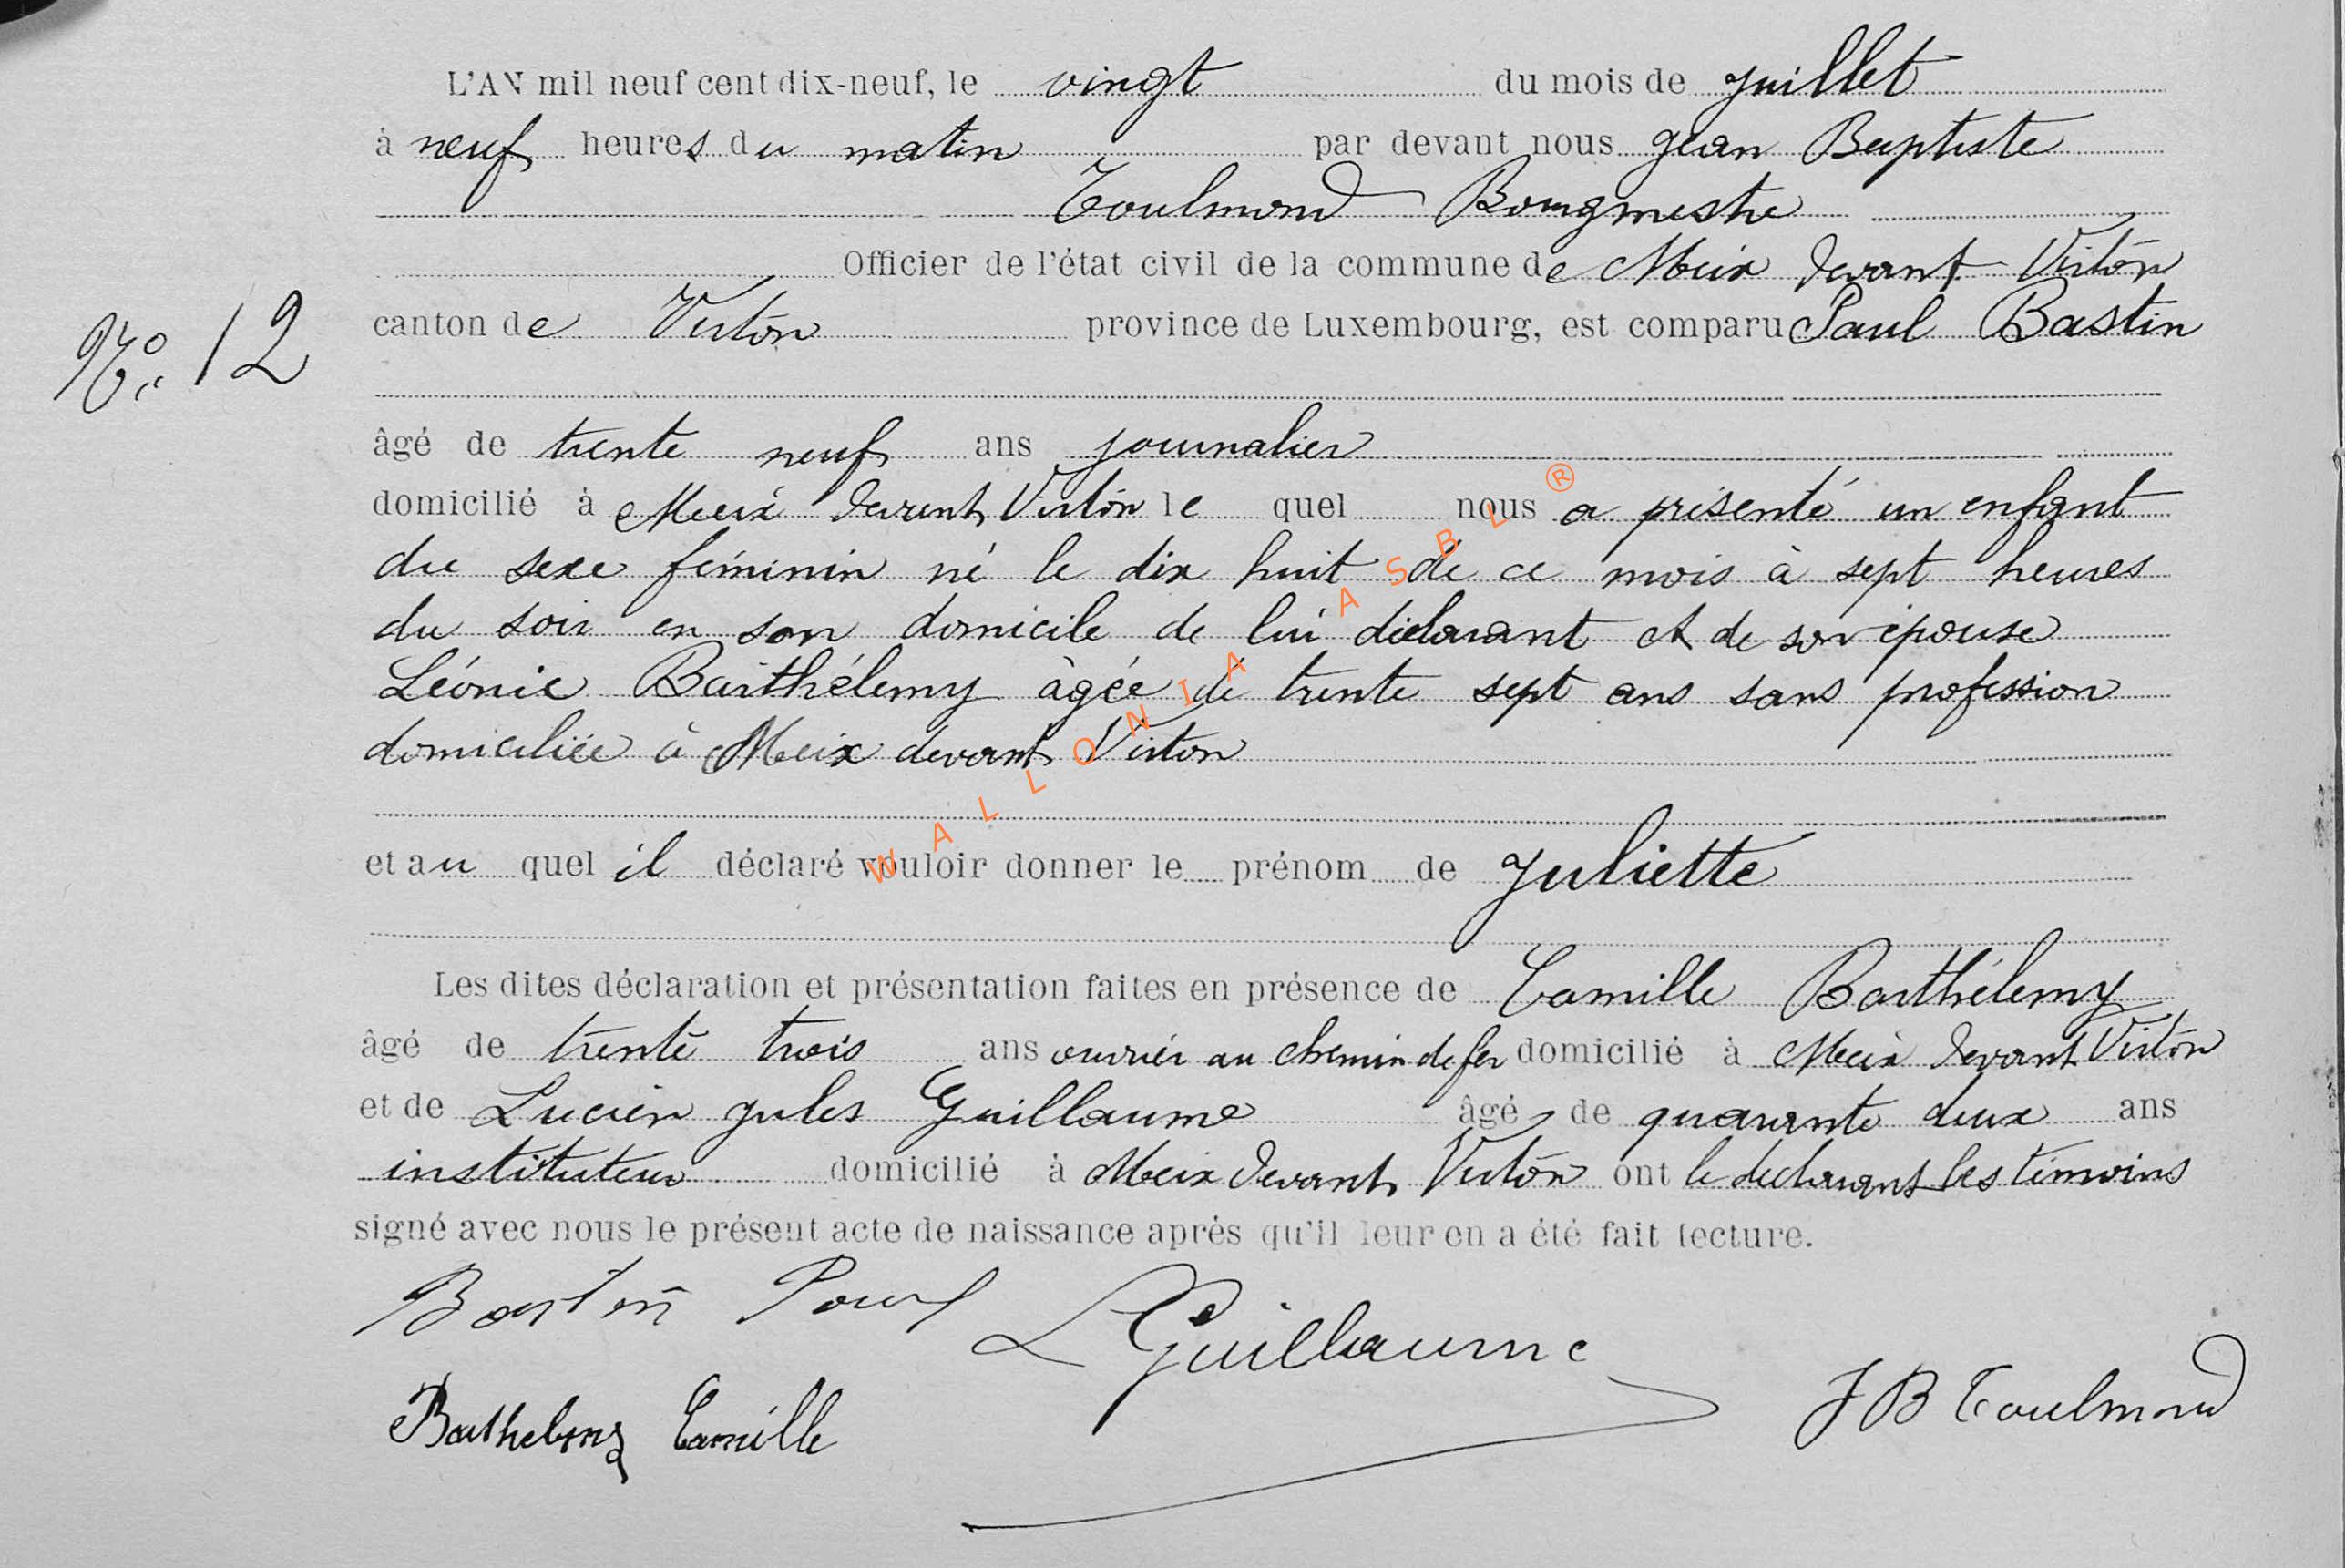 L'AN mil neuf cent dix-neuf, le vingt du mois de juillet
à neuf heures du matin par devant nous Jean Baptiste
Toulmond Bourgmestre
Officier de l'état civil de la commune de Meix devant Virton
N° 12
canton de Virton province de Luxembourg, est comparu Paul Bastin
âgé de trente neuf ans journalier
domicilié à Meix devant Virton le quel nous a présenté un enfant
du sexe féminin né le dix huit de ce mois à sept heures
du soir en son domicile de lui déclarant et de son épouse
Léonie Barthélemy âgée de trente sept ans sans profession
domiciliée à Meix devant Virton
et au quel il déclaré vouloir donner le prénom de Juliette
Les dites déclaration et présentation faites en présence de Camille Barthélemy
âgé de trente trois ans ouvrier au chemin de fer domicilié à Meix devant Virton
et de Lucien Jules Guillaume âgé de quarante deux ans
instituteur domicilié à Meix devant Virton ont le déclarant les témoins
signé avec nous le présent acte de naissance après qu'il leur en a été fait lecture.
Bastin Paul
LGuillaume
Barthelemy Camille
JB Toulmond
WALLONIA ASBL ®